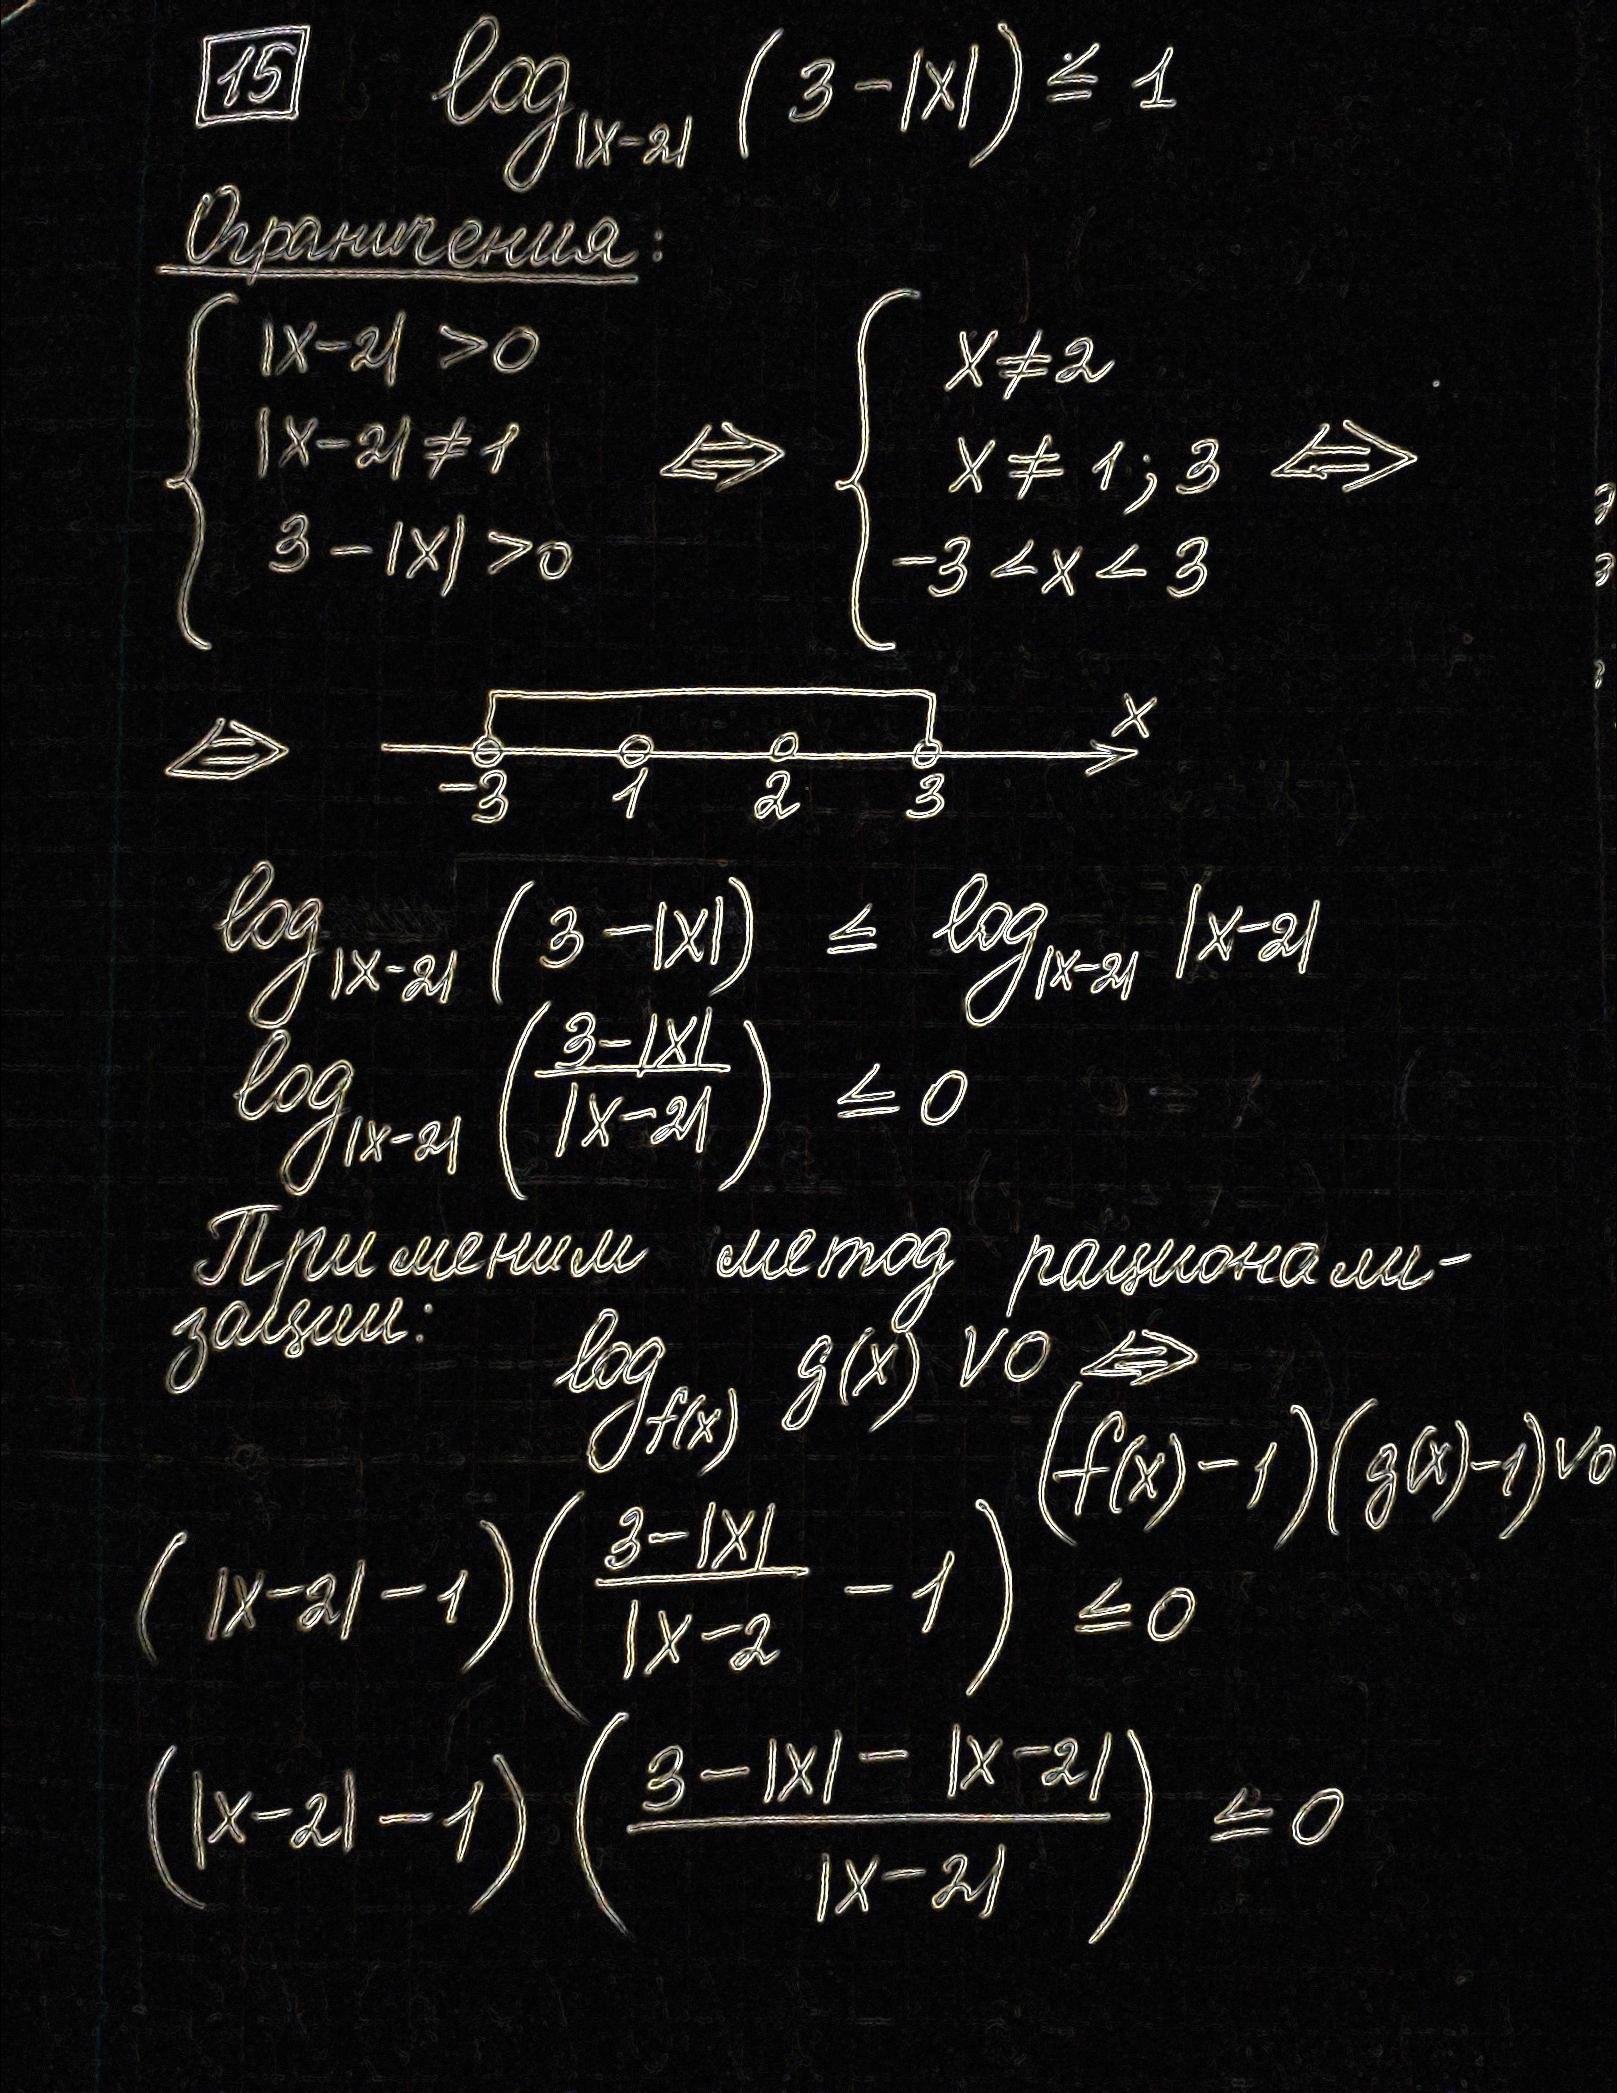 15 log_{|x-2|} (3-|x|) ≤ 1
Ограничения:
{ |x-2| >0 ⇔ { x≠2
|x-2| ≠ 1 x ≠ 1; 3 ⇔
3-|x| >0 -3 < x < 3
⇔ -3 1 2 3 x
log_{|x-2|} (3-|x|) ≤ log_{|x-2|} |x-2|
log_{|x-2|} ((3-|x|)/|x-2|) ≤ 0
Применим метод рационали-
зации: log_{f(x)} g(x) ∨ 0 ⇔
(f(x)-1)(g(x)-1) ∨ 0
(|x-2|-1)((3-|x|)/|x-2 - 1) ≤ 0
(|x-2|-1)((3-|x|-|x-2|)/|x-2|) ≤ 0